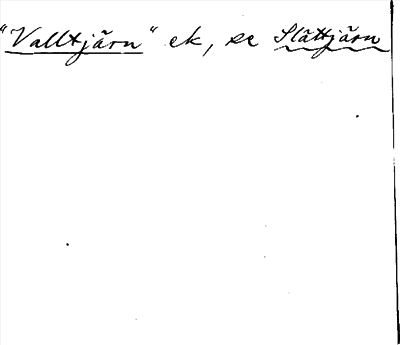 "Valltjärn" ek, se Slättjärn